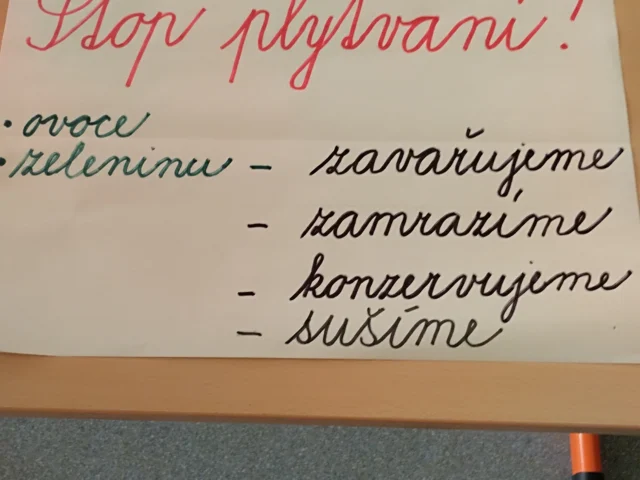 Stop plýtvání!
• ovoce
• zeleninu - zavařujeme
- zamrazíme
- konzervujeme
- sušíme